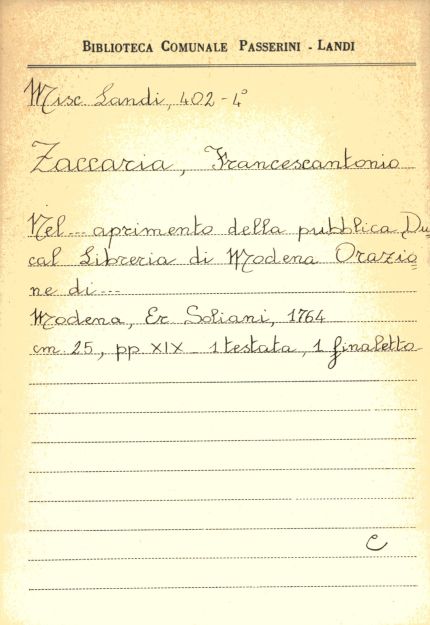 BIBLIOTECA COMUNALE PASSERINI - LANDI
Misc. Landi, 402-4°
Zaccaria, Francescantonio
Nel... aprimento della pubblica Du
cal Libreria di Modena Orazio
ne di...
Modena, Er Soliani, 1764
cm 25, pp XIX - 1 testata, 1 finaletto
C